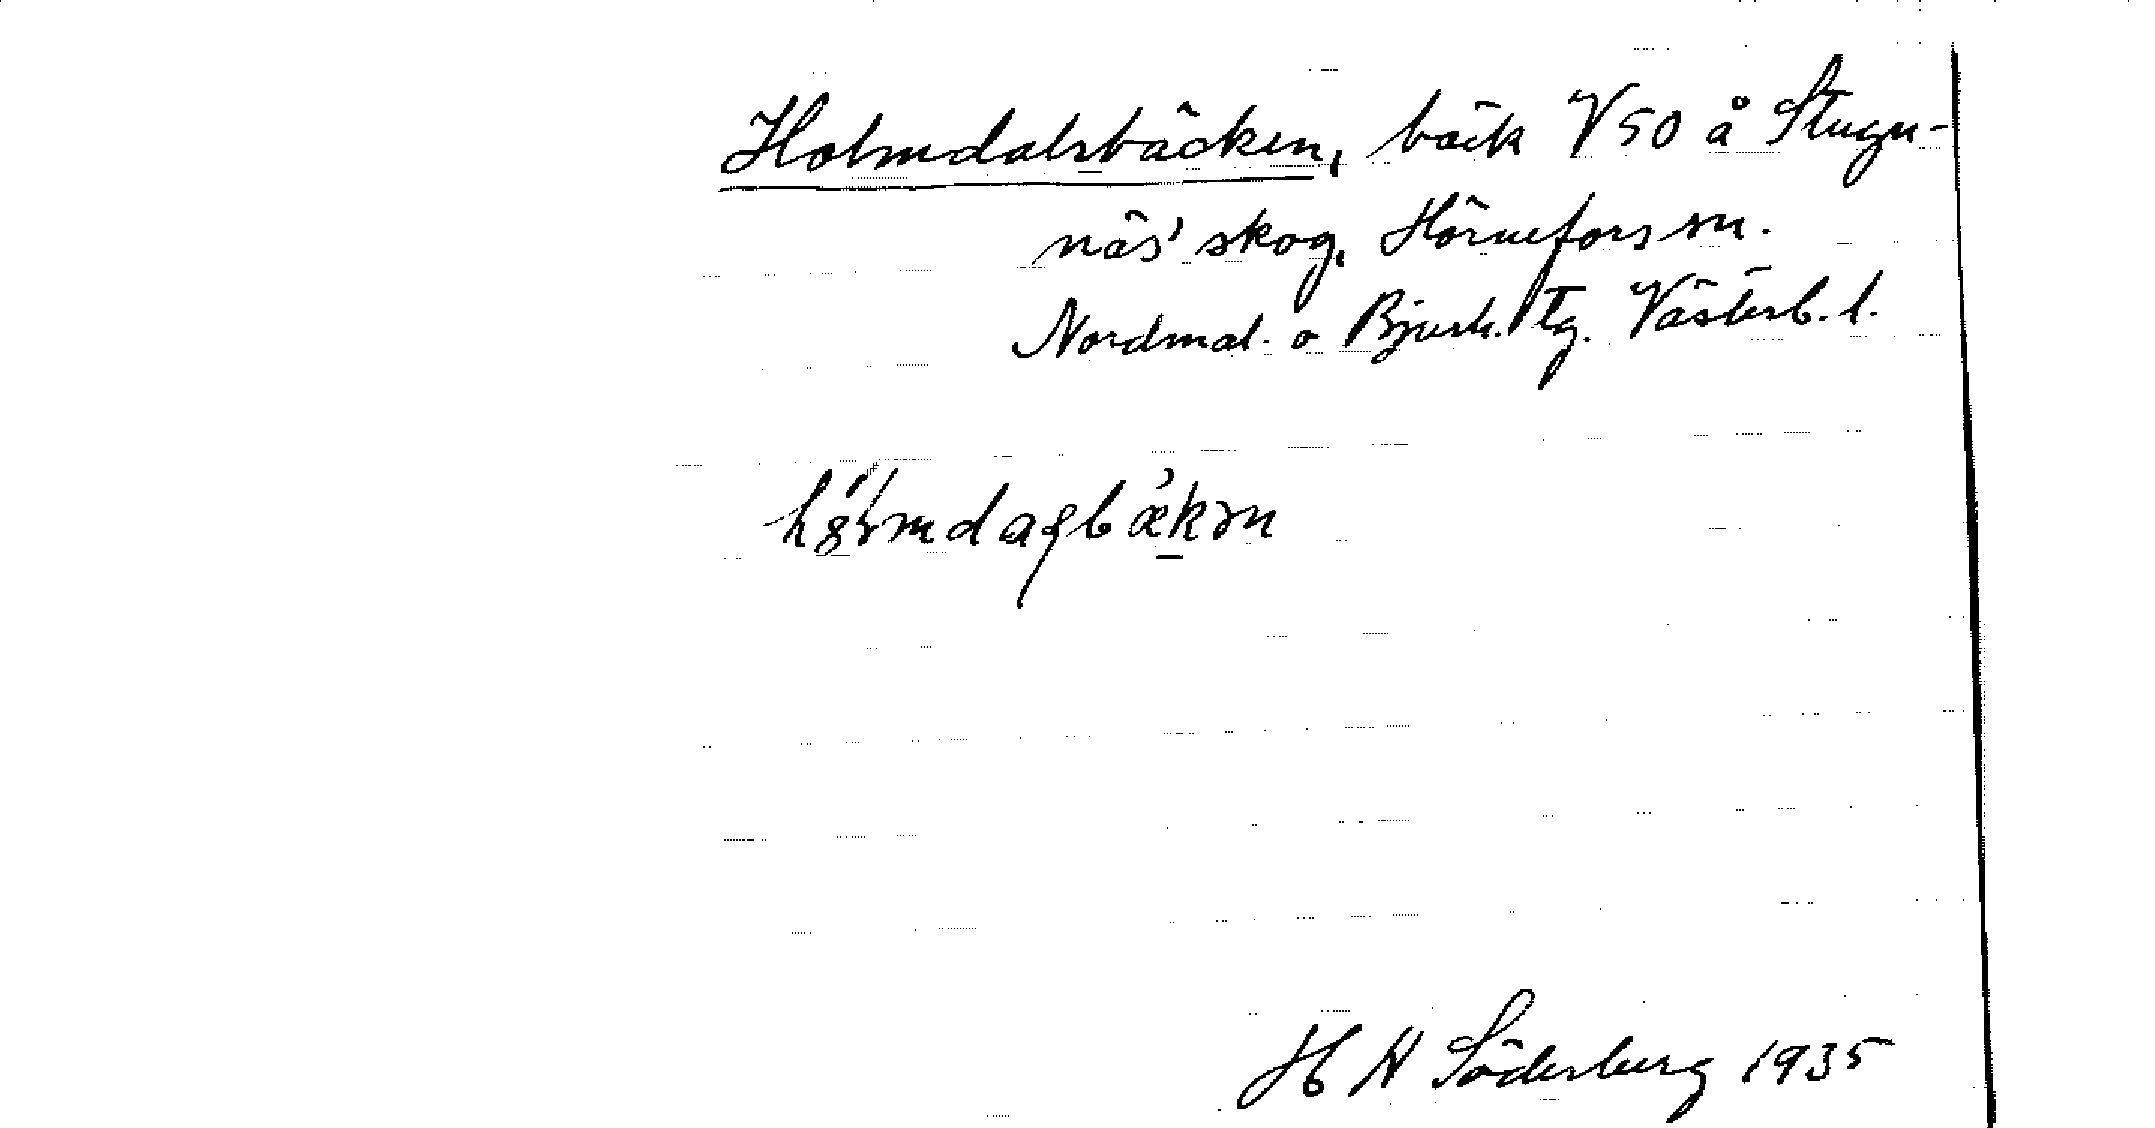 Holmdalsbäcken, bäck V 50 å Stugu-
näs' skog, Hörnefors sn.
Nordmal. o Bjurh. tg. Västerb. l.
H N Söderberg 1935